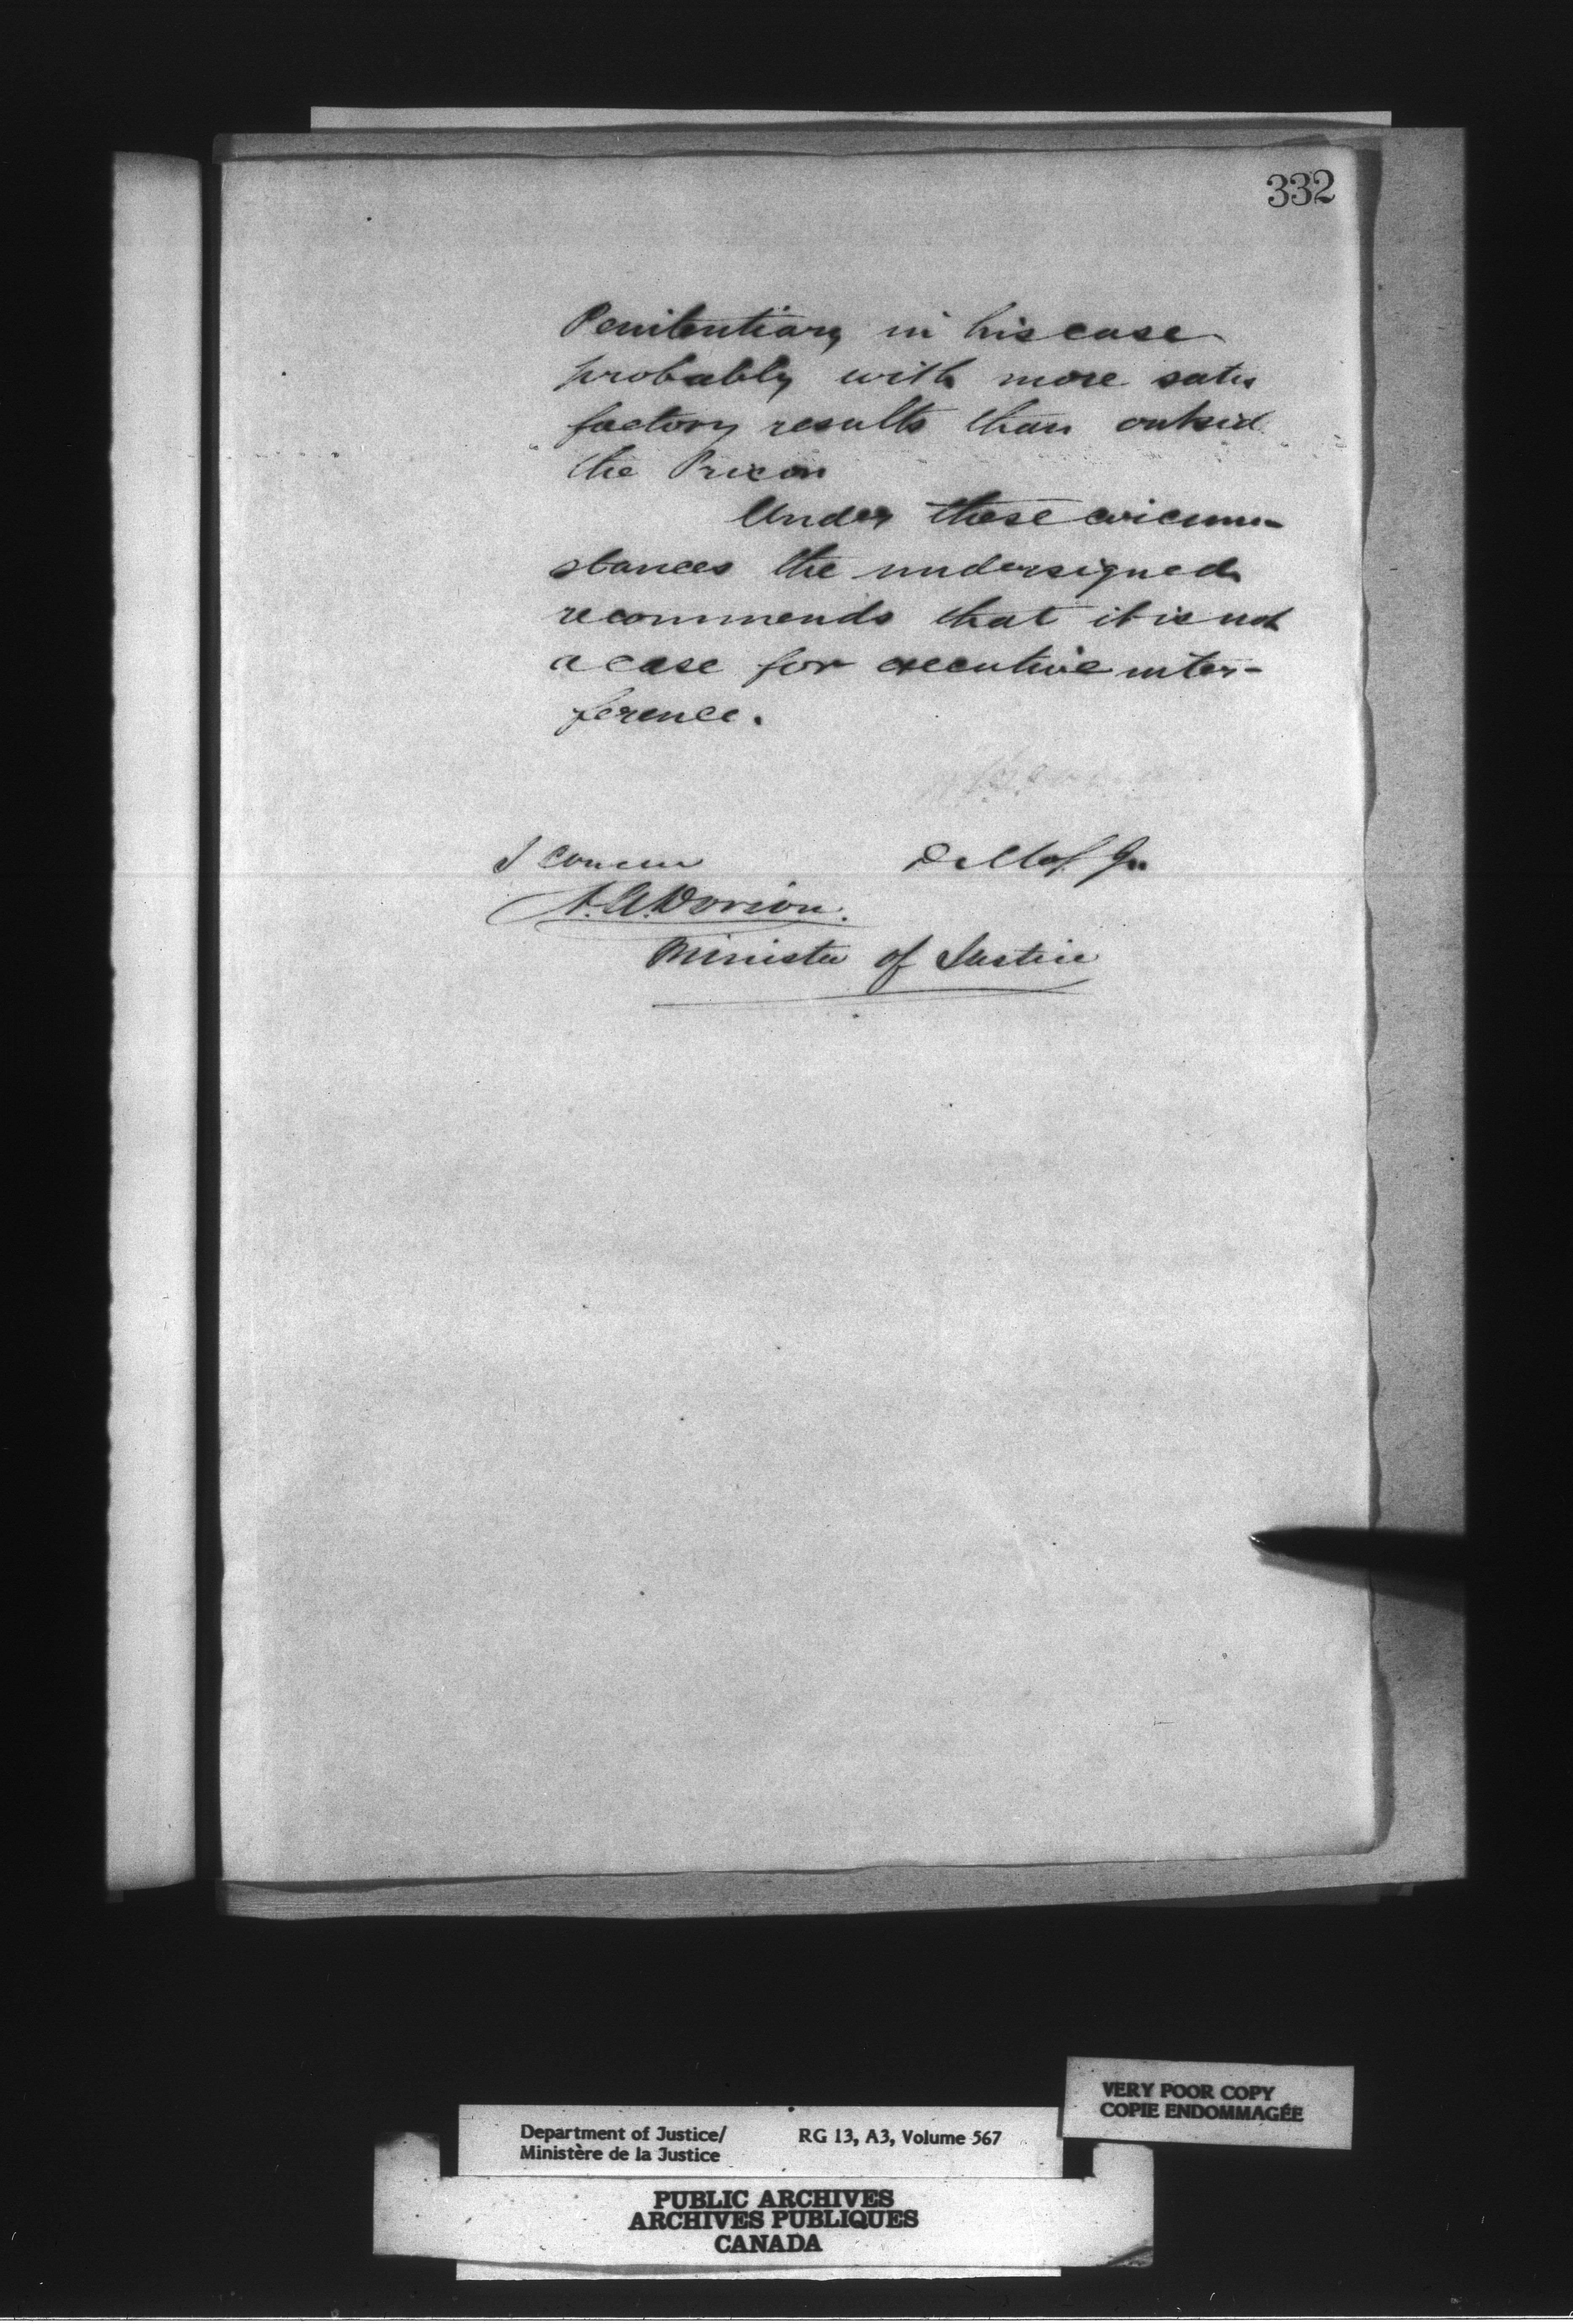 332
Penitentiary in his case
probably with more satis
factory results than outsid
the Prison
Under these circum-
stances the undersigned
recommends that it is not
a case for executive inter-
ference.
I concur
A.A. Dorion.
Minister of Justice
VERY POOR COPY
COPIE ENDOMMAGÉE
Department of Justice/ RG 13, A3, Volume 567
Ministère de la Justice
PUBLIC ARCHIVES
ARCHIVES PUBLIQUES
CANADA